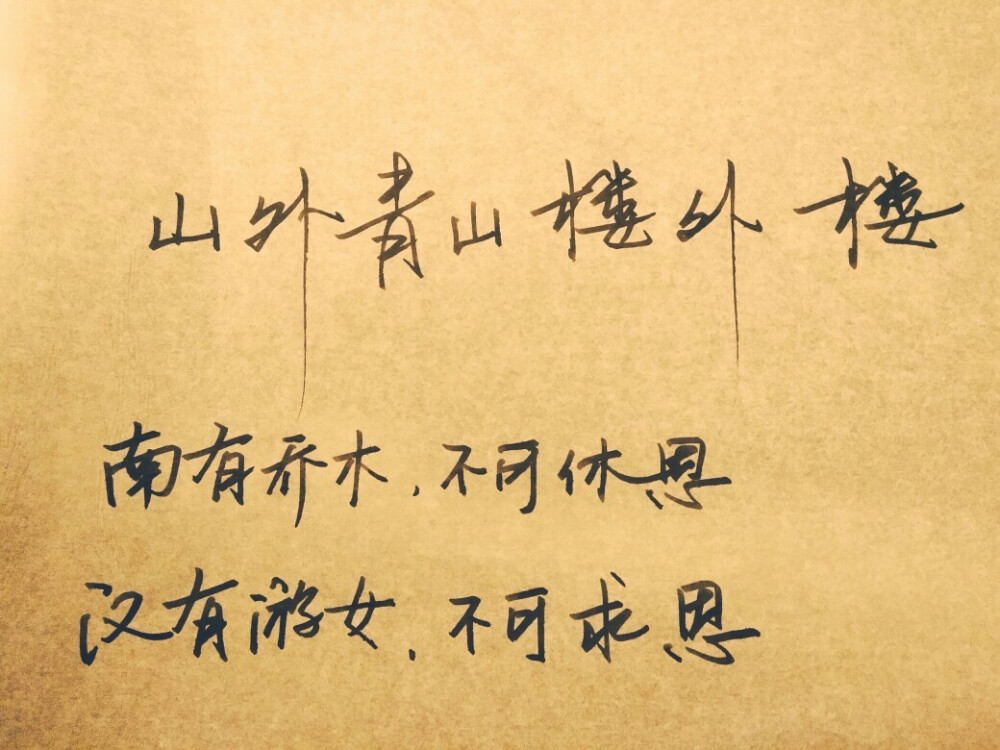 山外青山楼外楼
南有乔木,不可休恩
汉有游女,不可求恩